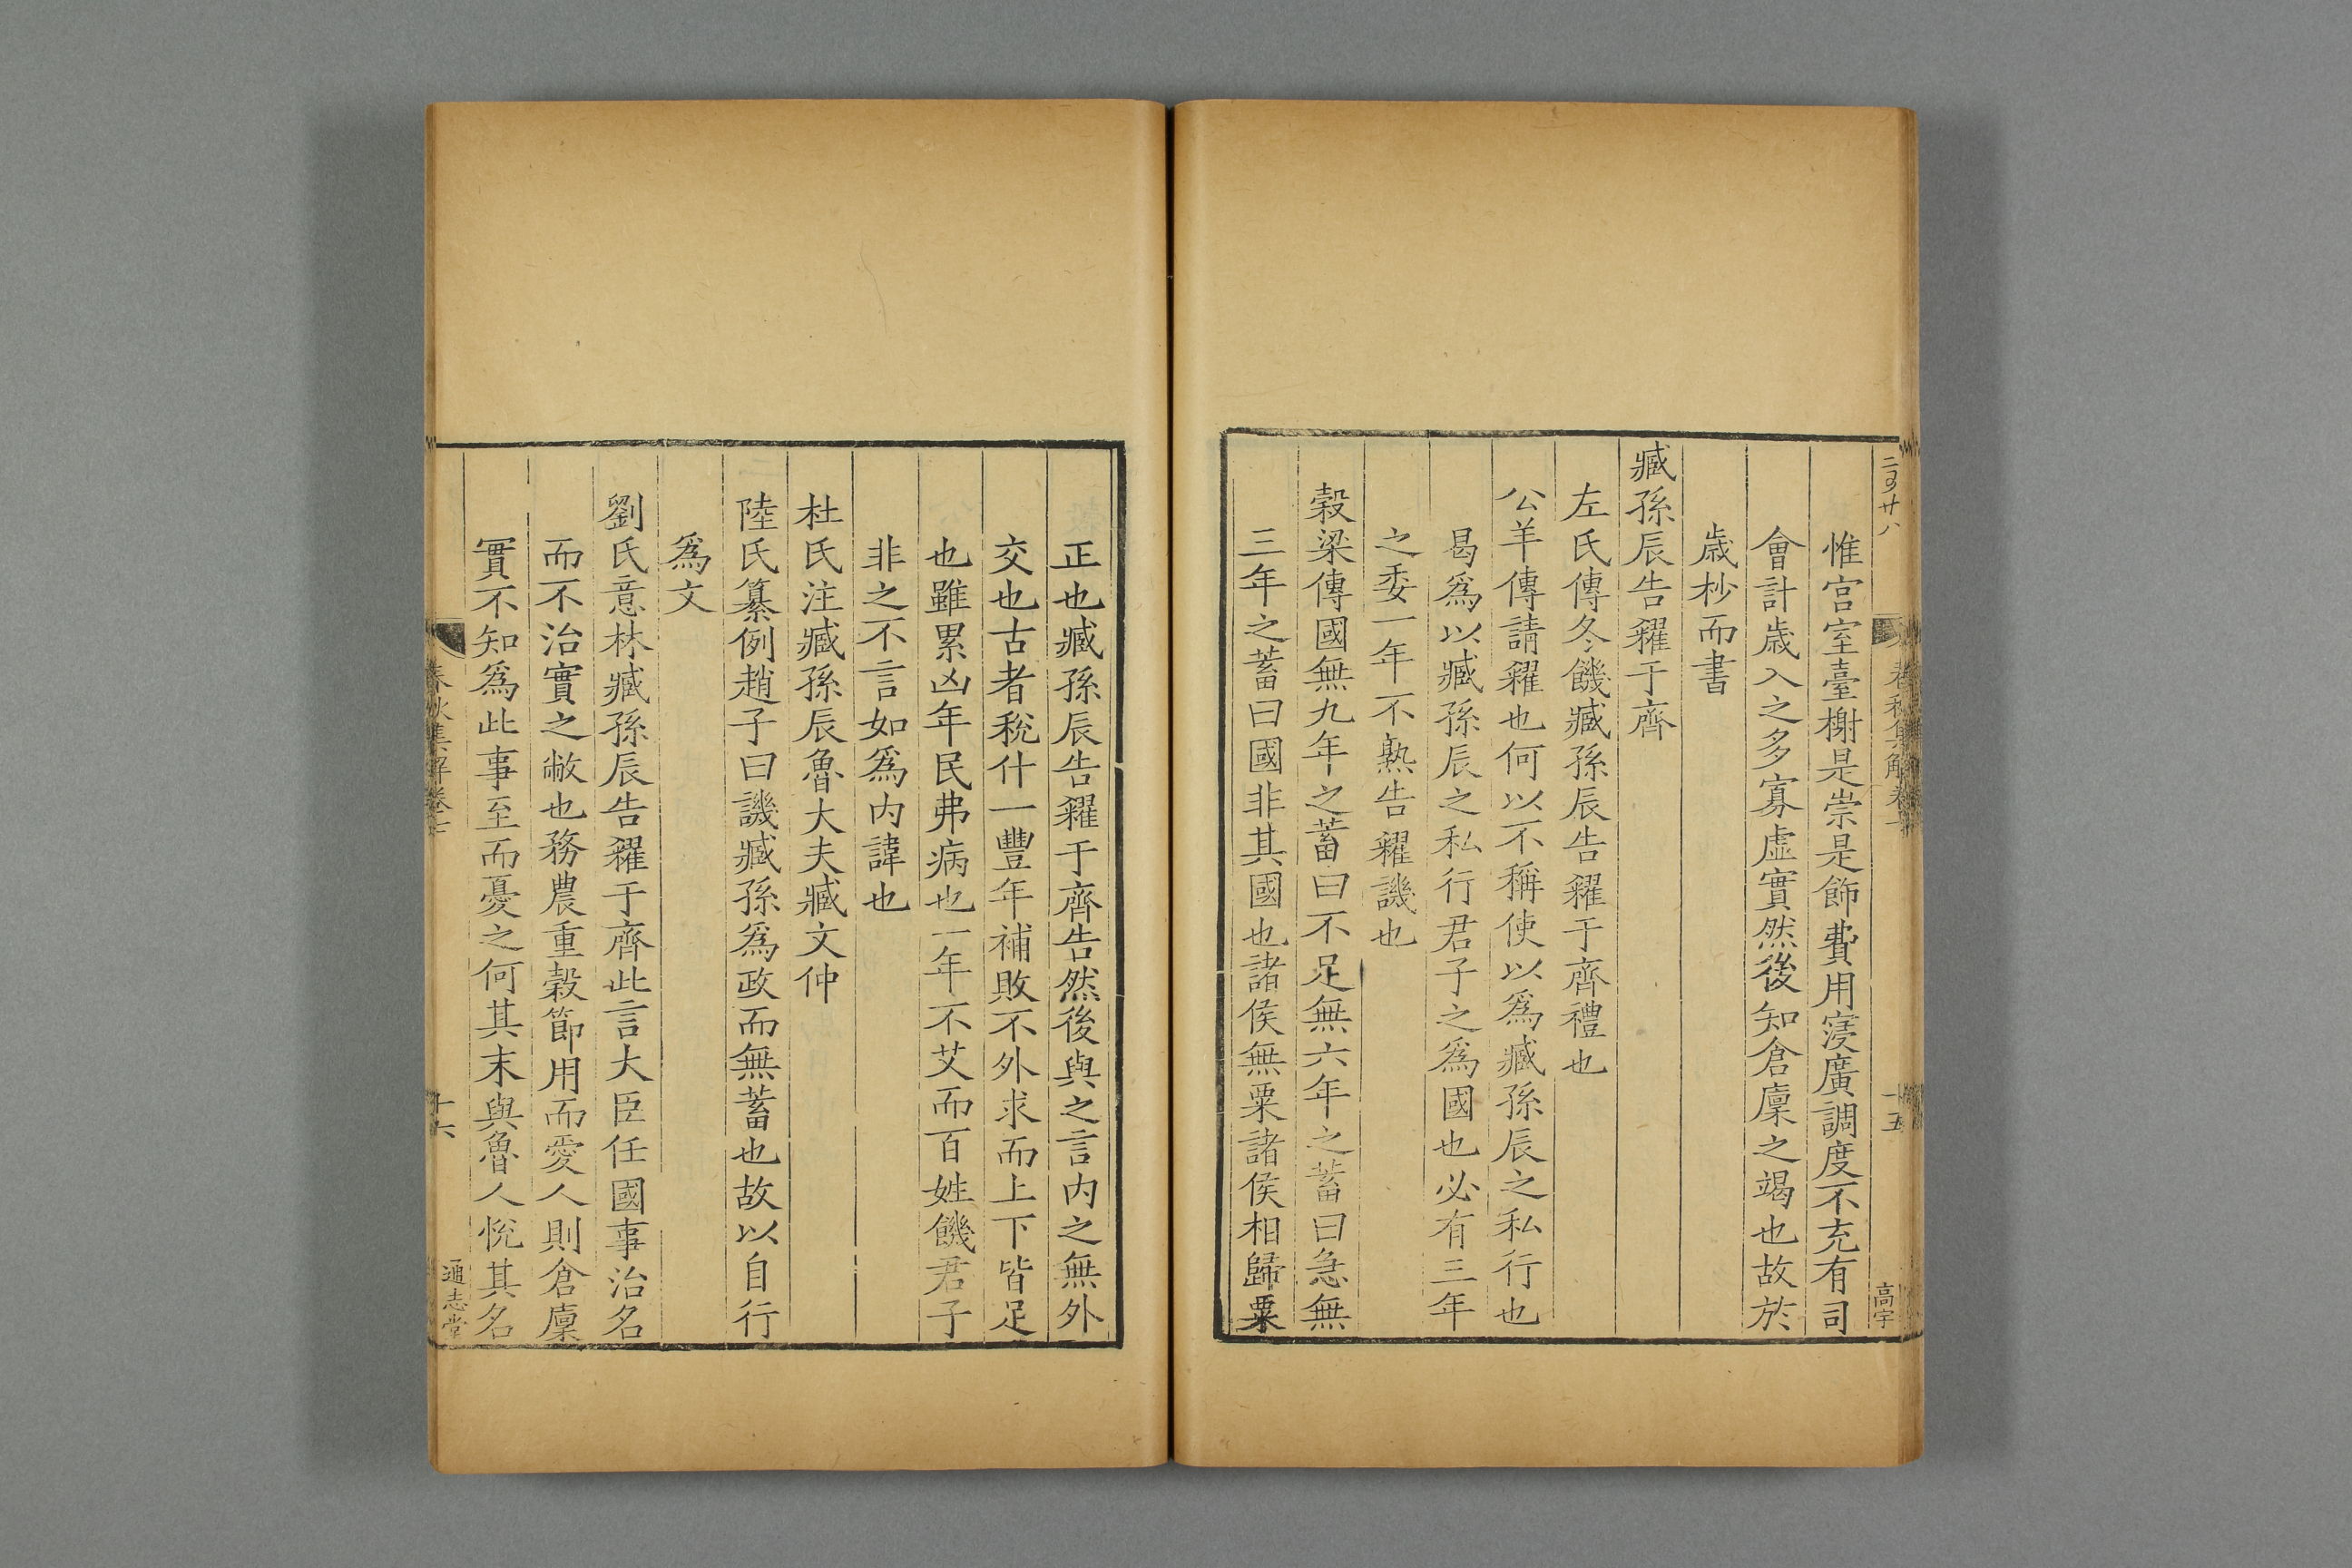 惟宫室臺榭是崇是飾費用寖廣調度不充有司
會計歲入之多寡虛實然後知倉廩之竭也故於
歲杪而書
臧孫辰告糴于齊
左氏傳冬饑臧孫辰告糴于齊禮也
公羊傳請糴也何以不稱使以爲臧孫辰之私行也
曷爲以臧孫辰之私行君子之爲國也必有三年
之委一年不熟告糴譏也
穀梁傳國無九年之蓄曰不足無六年之蓄曰急無
三年之蓄曰國非其國也諸侯無粟諸侯相歸粟
正也臧孫辰告糴于齊告然後與之言内之無外
交也古者稅什一豐年補敗不外求而上下皆足
也雖累凶年民弗病也一年不艾而百姓饑君子
非之不言如爲内諱也
杜氏注臧孫辰魯大夫臧文仲
陸氏纂例趙子曰譏臧孫爲政而無蓄也故以自行
爲文
劉氏意林臧孫辰告糴于齊此言大臣任國事治名
而不治實之敝也務農重穀節用而愛人則倉廩
實不知爲此事至而憂之何其末與魯人悅其名
春秋集解卷七
十六
通志堂
春秋集解卷
十五
高宇